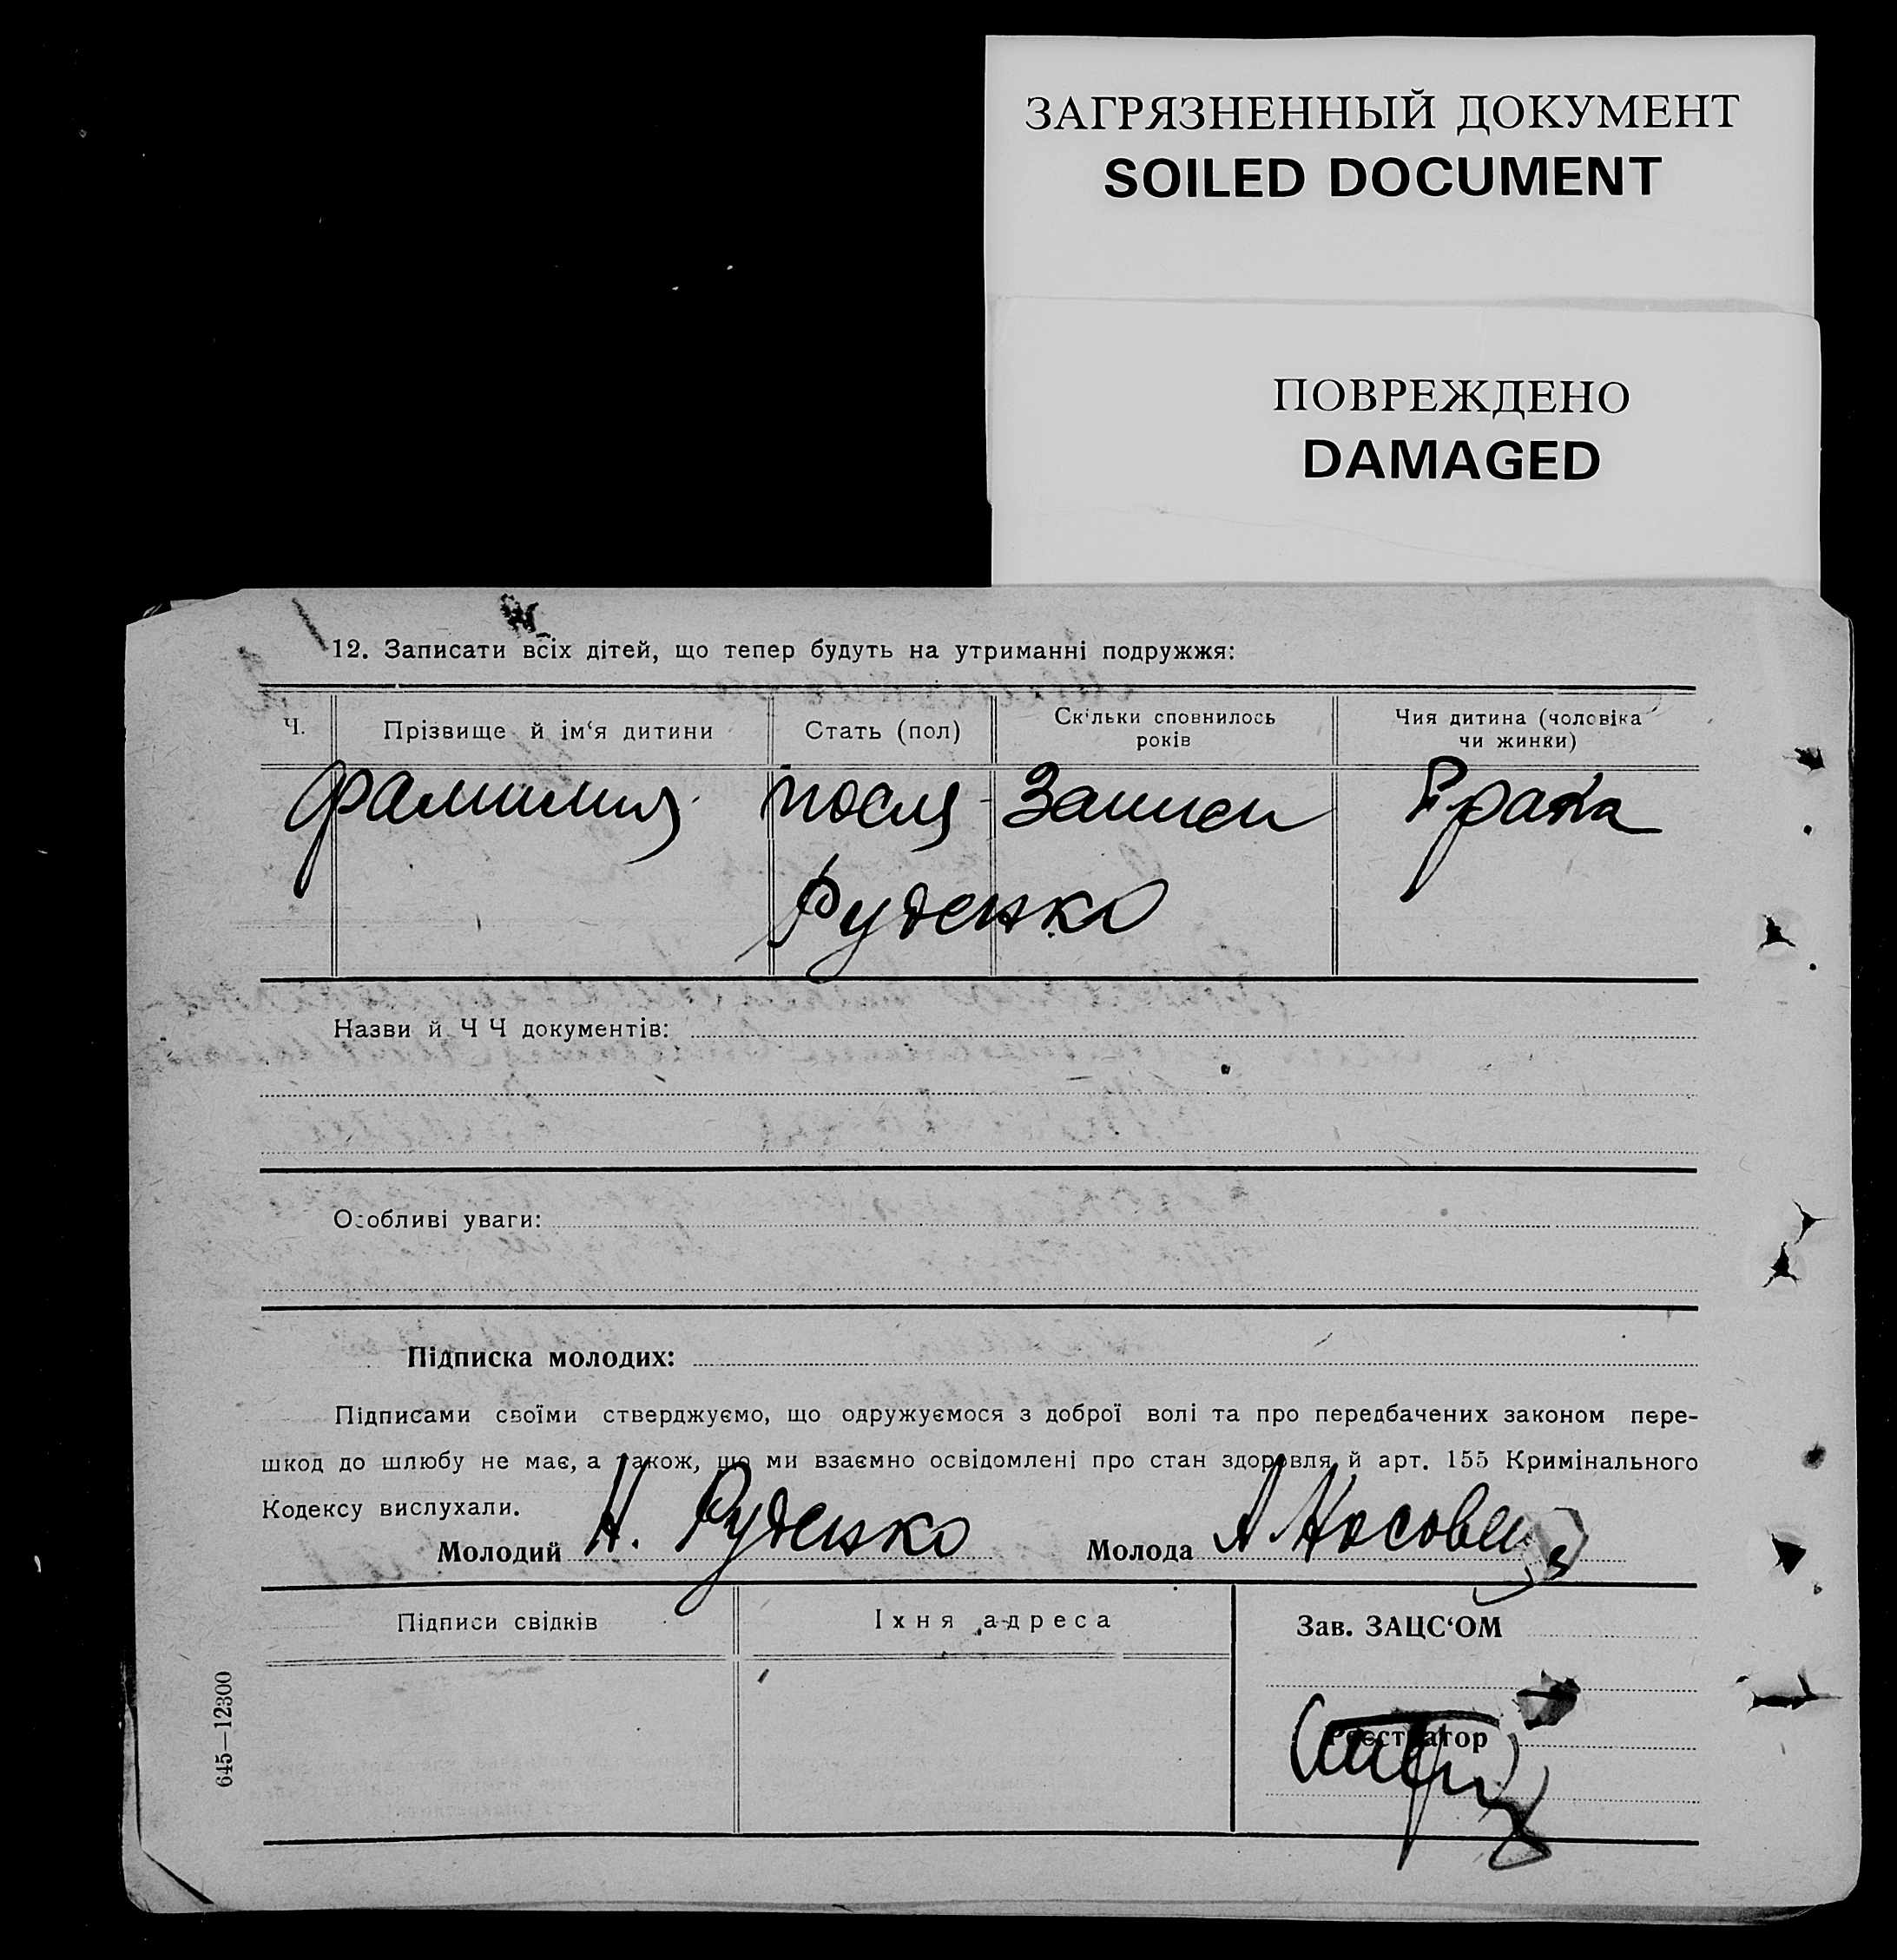 ЗАГРЯЗНЕННЫЙ ДОКУМЕНТ
SOILED DOCUMENT
ПОВРЕЖДЕНО
DAMAGED
12. Записати всіх дітей, що тепер будуть на утриманні подружжя:
Ч. Прізвище й ім‘я дитини Стать (пол) Скільки сповнилось років Чия дитина (чоловіка чи жинки)
фамилия после Записи брака
Руденко
Назви й Ч Ч документів:
Особливі уваги:
Підписка молодих:
Підписами своїми стверджуємо, що одружуємося з доброї волі та про передбачених законом пере-
шкод до шлюбу не має, а також, що ми взаємно освідомлені про стан здоровля й арт. 155 Кримінального
Кодексу вислухали.
Молодий Н. Руденко Молода А
Підписи свідків Їхня адреса Зав. ЗАЦС‘ОМ
Реєстратор
645—12300